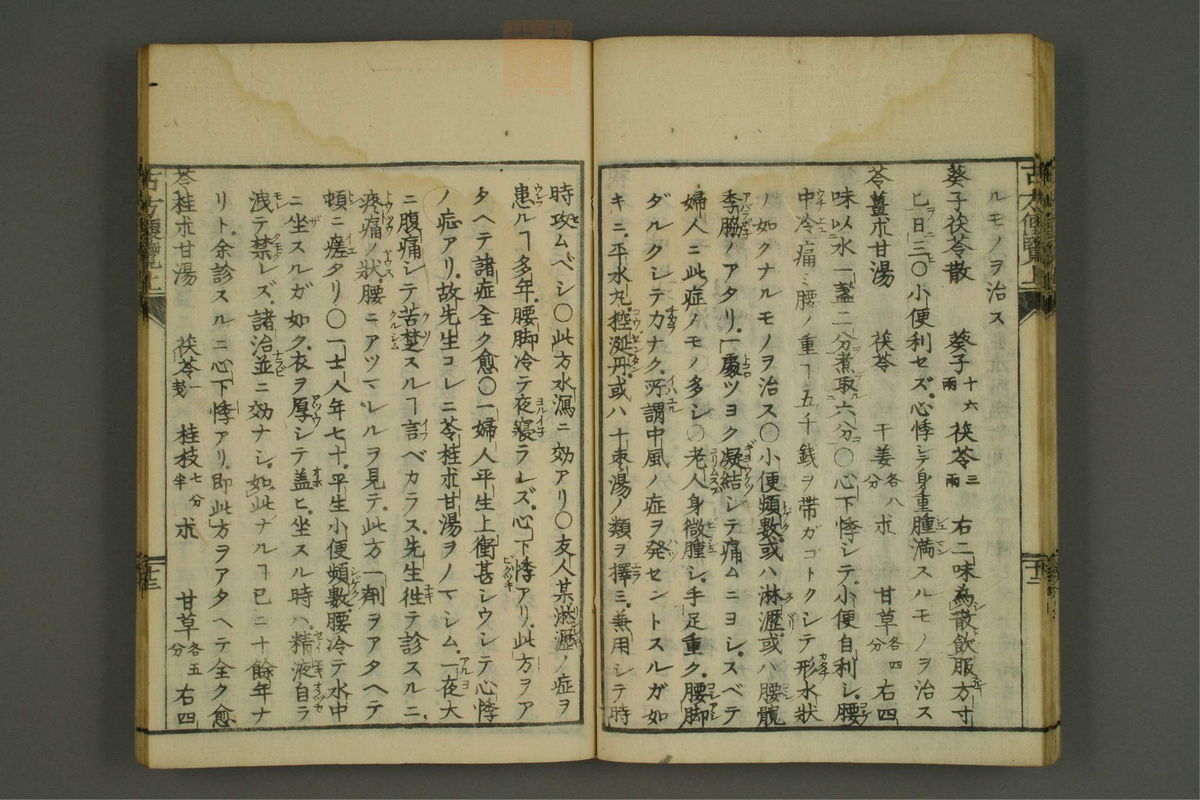 ルモノヲ治ス
葵子茯苓散 葵子十六兩 茯苓三兩 右二味為散飲服方寸
匕日三○小便利セズ心悸シテ身重腫満スルモノヲ治ス
苓薑朮甘湯 茯苓 干姜各八分 朮 甘草各四分 右四
味以水一盞二分煮取六分○心下悸シテ小便自利シ腰
中冷痛ミ腰ノ重ヿ五千銭ヲ帯ガゴトクシテ形水状
ノ如クナルモノヲ治ス○小便頻數或ハ淋瀝或ハ腰髖
季脇ノアタリ一處ツヨク凝結シテ痛ムニヨシスベテ
婦人ニ此症ノモノ多シ○老人身微腫シ手足重ク腰脚
ダルクシテカナク所謂中風ノ症ヲ発セントスルガ如
キニ平水丸控涎丹或ハ十棗湯ノ類ヲ擇ミ兼用シテ時
時攻ムベシ○此方水瀉ニ効アリ○友人某淋瀝ノ症ヲ
患ルヿ多年腰脚冷テ夜寝ラレズ心下悸アリ此方ヲア
タヘテ諸症全ク愈○一婦人平生上衝甚シウシテ心悸
ノ症アリ故先生コレニ苓桂朮甘湯ヲノマシム一夜大
ニ腹痛シテ苦楚スルヿ言ベカラス先生徃テ診スルニ
疼痛ノ状腰ニアツマレルヲ見テ此方一劑ヲアタヘテ
頓ニ瘥タリ○一士人年七十平生小便頻數腰冷テ水中
ニ坐スルガ如ク衣ヲ厚シテ蓋ヒ坐スル時ハ精液自ラ
洩テ禁レズ諸治並ニ効ナシ如此ナルヿ已ニ十餘年ナ
リト余診スルニ心下悸アリ即此方ヲアタヘテ全ク愈
苓桂朮甘湯 茯苓 桂枝七分半 朮 甘草各五分 右四